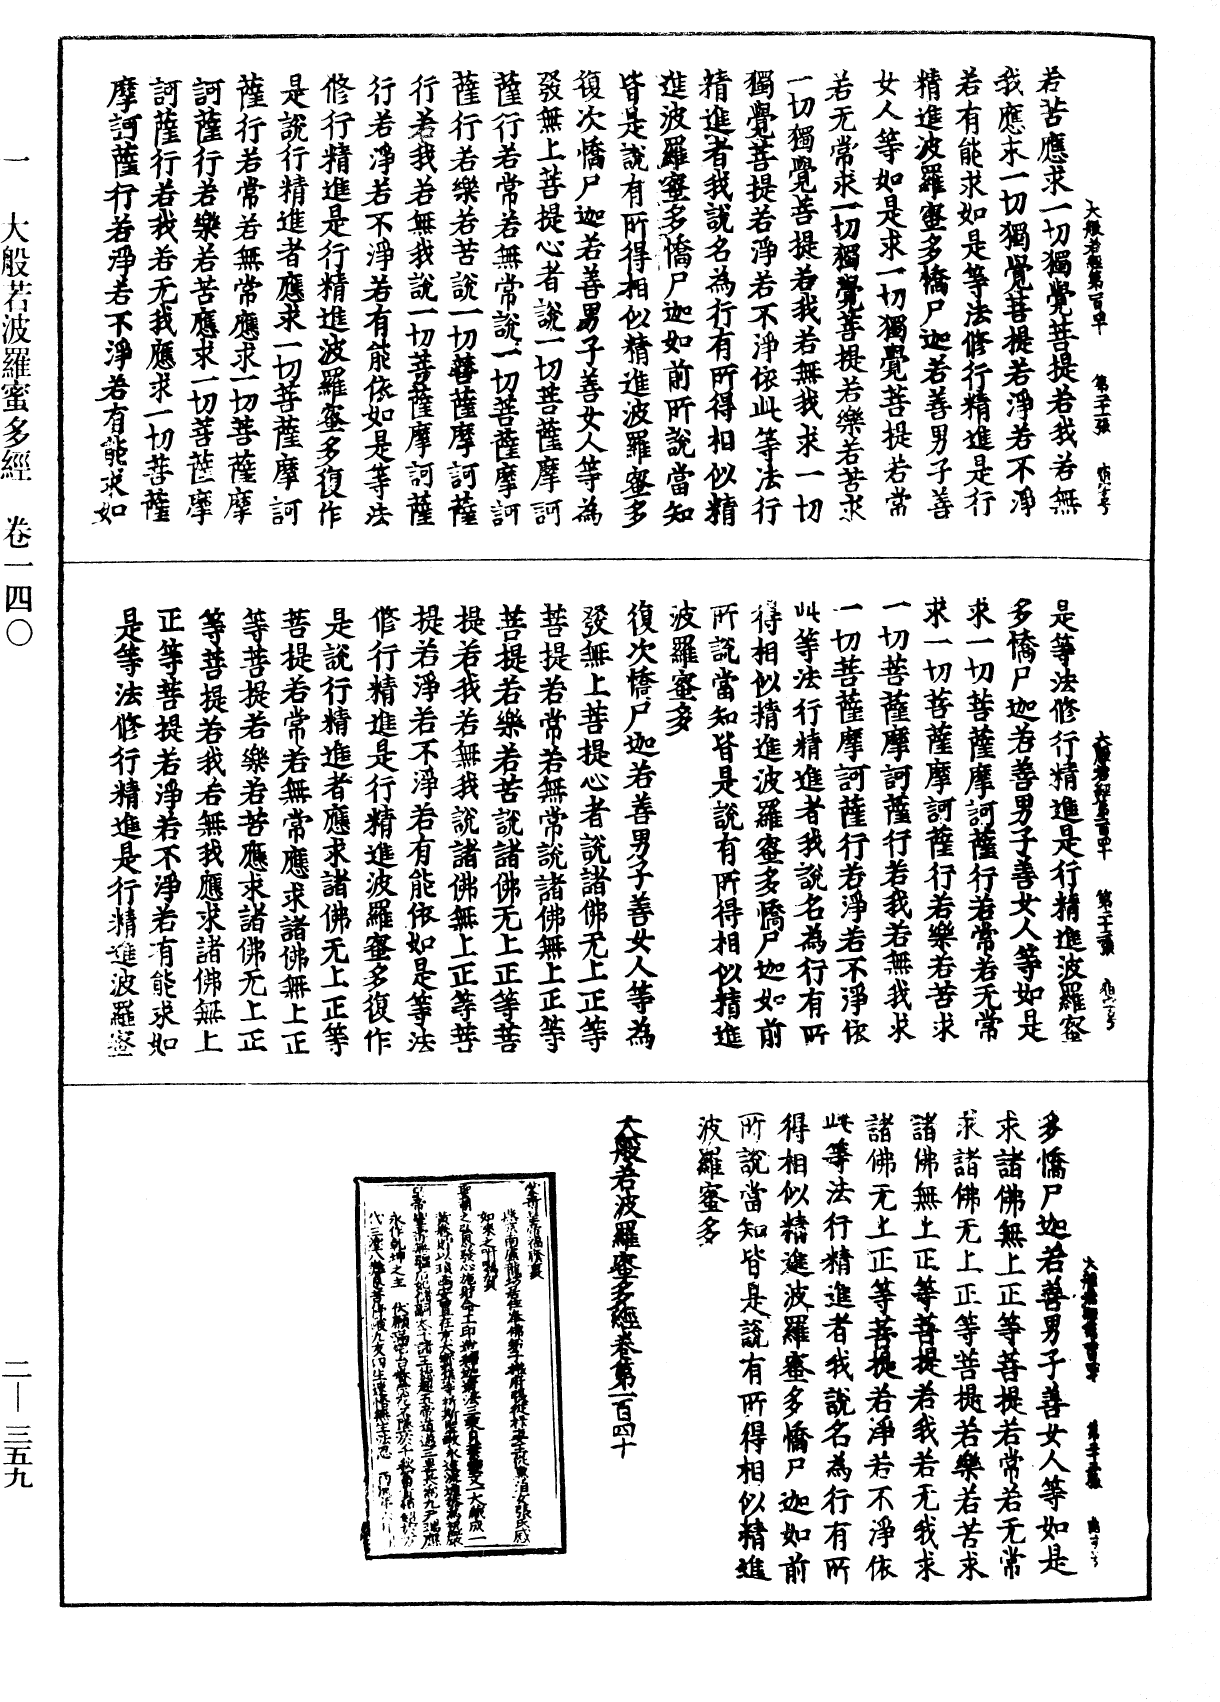 若苦應求一切獨覺菩提若我若無
我應求一切獨覺菩提若淨若不淨
若有能求如是等法修行精進是行
精進波羅蜜多憍尸迦若善男子善
女人等如是求一切獨覺菩提若常
若无常求一切獨覺菩提若樂若苦求
一切獨覺菩提若我若無我求一切
獨覺菩提若淨若不淨依此等法行
精進者我說名為行有所得相似精
進波羅蜜多憍尸迦如前所說當知
皆是說有所得相似精進波羅蜜多
復次憍尸迦若善男子善女人等為
發無上菩提心者說一切菩薩摩訶
薩行若常若無常說一切菩薩摩訶
薩行若樂若苦說一切菩薩摩訶薩
行若我若無我說一切菩薩摩訶薩
行若淨若不淨若有能依如是等法
修行精進是行精進波羅蜜多復作
是說行精進者應求一切菩薩摩訶
薩行若常若無常應求一切菩薩摩
訶薩行若樂若苦應求一切菩薩摩
訶薩行若我若无我應求一切菩薩
摩訶薩行若淨若不淨若有能求如
是等法修行精進是行精進波羅蜜
多憍尸迦若善男子善女人等如是
求一切菩薩摩訶薩行若常若无常
求一切菩薩摩訶薩行若樂若苦求
一切菩薩摩訶薩行若我若無我求
一切菩薩摩訶薩行若淨若不淨依
此等法行精進者我說名為行有所
得相似精進波羅蜜多憍尸迦如前
所說當知皆是說有所得相似精進
波羅蜜多
復次憍尸迦若善男子善女人等為
發無上菩提心者說諸佛无上正等
菩提若常若無常說諸佛無上正等
菩提若樂若苦說諸佛无上正等菩
提若我若無我說諸佛無上正等菩
提若淨若不淨若有能依如是等法
修行精進是行精進波羅蜜多復作
是說行精進者應求諸佛无上正等
菩提若常若無常應求諸佛無上正
等菩提若樂若苦應求諸佛无上正
等菩提若我若無我應求諸佛無上
正等菩提若淨若不淨若有能求如
是等法修行精進是行精進波羅蜜
多憍尸迦若善男子善女人等如是
求諸佛無上正等菩提若常若无常
求諸佛无上正等菩提若樂若苦求
諸佛無上正等菩提若我若无我求
諸佛无上正等菩提若淨若不淨依
此等法行精進者我說名為行有所
得相似精進波羅蜜多憍尸迦如前
所說當知皆是說有所得相似精進
波羅蜜多
大般若波羅蜜多經卷第一百四十
一 大般若波羅蜜多經 卷一四〇
二—三五九